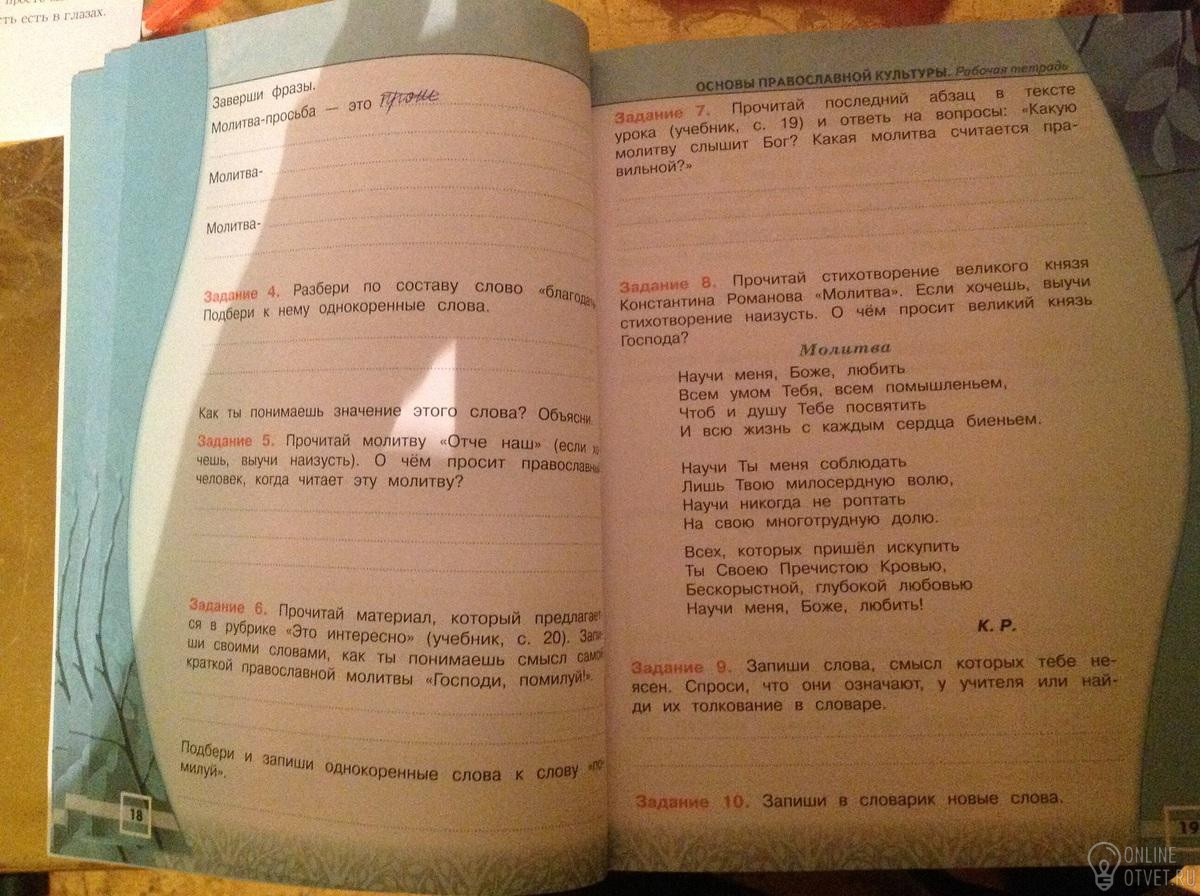 сть есть в глазах.
Заверши фразы.
Молитва-просьба — это
Молитва-
Молитва-
Задание 4. Разбери по составу слово «благодать
Подбери к нему однокоренные слова.
Как ты понимаешь значение этого слова? Объясни.
Задание 5. Прочитай молитву «Отче наш» (если хо-
чешь, выучи наизусть). О чём просит православны
человек, когда читает эту молитву?
Задание 6. Прочитай материал, который предлагает
ся в рубрике «Это интересно» (учебник, с. 20). Запи
ши своими словами, как ты понимаешь смысл само
краткой православной молитвы «Господи, помилуй!».
Подбери и запиши однокоренные слова к слову «по-
милуй».
18
ОСНОВЫ ПРАВОСЛАВНОЙ КУЛЬТУРЫ. Рабочая тетрадь
Задание 7. Прочитай последний абзац в тексте
урока (учебник, с. 19) и ответь на вопросы: «Какую
молитву слышит Бог? Какая молитва считается пра-
вильной?»
Задание 8. Прочитай стихотворение великого князя
Константина Романова «Молитва». Если хочешь, выучи
стихотворение наизусть. О чём просит великий князь
Господа?
Молитва
Научи меня, Боже, любить
Всем умом Тебя, всем помышленьем,
Чтоб и душу Тебе посвятить
И всю жизнь с каждым сердца биеньем.
Научи Ты меня соблюдать
Лишь Твою милосердную волю,
Научи никогда не роптать
На свою многотрудную долю.
Всех, которых пришёл искупить
Ты Своею Пречистою Кровью,
Бескорыстной, глубокой любовью
Научи меня, Боже, любить!
К. Р.
Задание 9. Запиши слова, смысл которых тебе не-
ясен. Спроси, что они означают, у учителя или най-
ди их толкование в словаре.
Задание 10. Запиши в словарик новые слова.
19
ONLINE
OTVET.RU